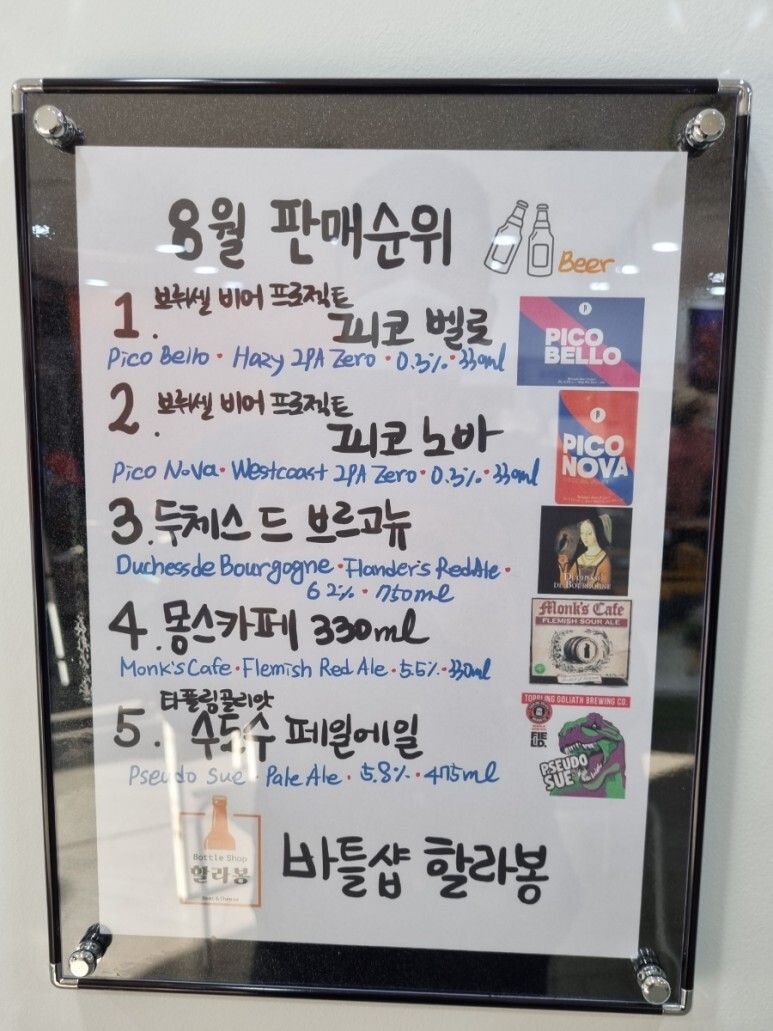 8월 판매순위
Beer
1. 브뤼셀 비어 프로젝트
피코 벨로
Pico Bello · Hazy IPA Zero · 0.3% · 330ml
PICO
BELLO
2. 브뤼셀 비어 프로젝트
피코 노바
Pico Nova · Westcoast IPA Zero · 0.3% · 330ml
PICO
NOVA
3. 두체스 드 브르고뉴
Duchess de Bourgogne · Flander's Red Ale ·
6.2% · 750ml
DUCHESSE
DE BOURGOGNE
4. 몽스카페 330ml
Monk's Cafe · Flemish Red Ale · 5.5% · 330ml
Monk's Cafe
FLEMISH SOUR ALE
타플링골리앗
5. 수도수 페일에일
Pseudo Sue · Pale Ale · 5.8% · 475ml
TOPPLING GOLIATH BREWING CO.
PSEUDO
SUE
Bottle Shop
할라봉
바틀샵 할라봉